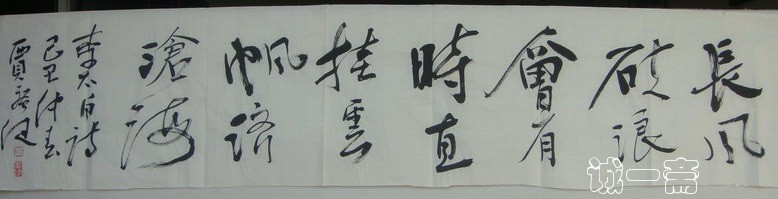 長風
破浪
會有
時直
挂雲
帆济
滄海
李太白詩
己丑仲春
賈
诚一斋